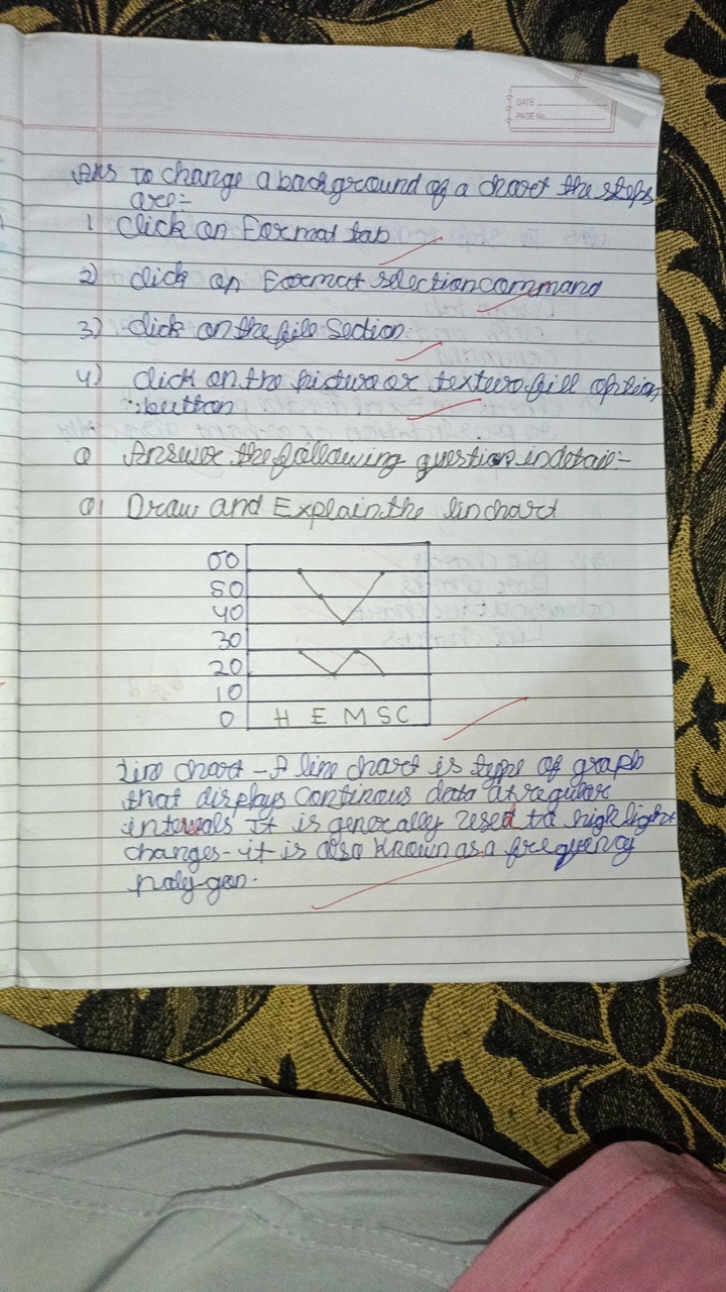 DATE
PAGE No.
Ans To change a background of a chart the steps
are=
1 Click on Format tab
2) click on Format selection command
3) click on the file section.
4) click on the picture or texture fill option
button
Q Answer the following question in detail=
Q1 Draw and Explain the lin chart
60
50
40
30
20
10
0 H E M SC
Line chart - A line chart is type of graph
that displays continous data at regular
intervals It is generally used to high light
changes - it is also known as a frequency
poly gon.